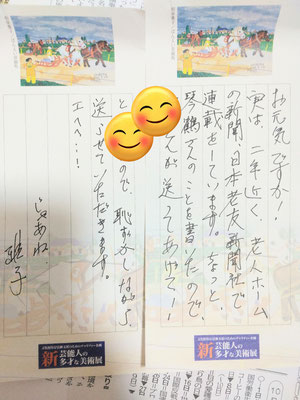 お元気ですか!
実は、二年近く、老人ホーム
の新聞、日本老友新聞社で
連載をしています。ちょっと、
琴鶴さんのことを書いたので、
が送ってあげて!!
新 芸能人の
多才な美術展
と
ので、恥ずかしながら
送らせていただきます。
エヘヘ…!
じゃあね
雅子
新 芸能人の
多才な美術展